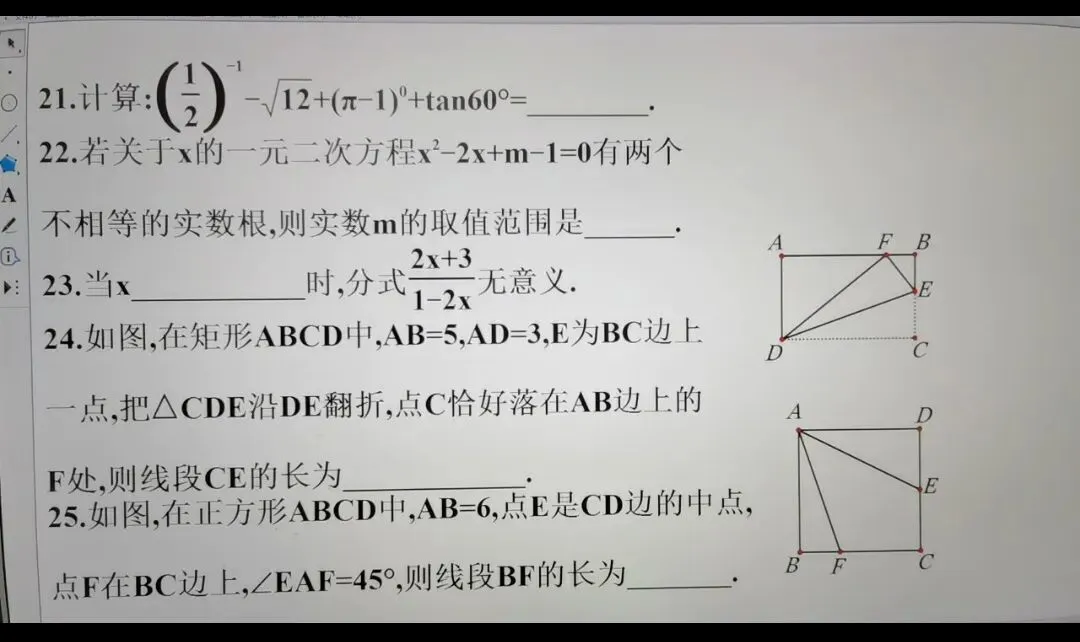 21.计算:(1/2)⁻¹-√12+(π-1)⁰+tan60°=________.
22.若关于x的一元二次方程x²-2x+m-1=0有两个
不相等的实数根,则实数m的取值范围是______.
23.当x___________时,分式(2x+3)/(1-2x)无意义.
24.如图,在矩形ABCD中,AB=5,AD=3,E为BC边上
一点,把△CDE沿DE翻折,点C恰好落在AB边上的
F处,则线段CE的长为____________.
25.如图,在正方形ABCD中,AB=6,点E是CD边的中点,
点F在BC边上,∠EAF=45°,则线段BF的长为_______.
A F B
E
D C
A D
E
B F C